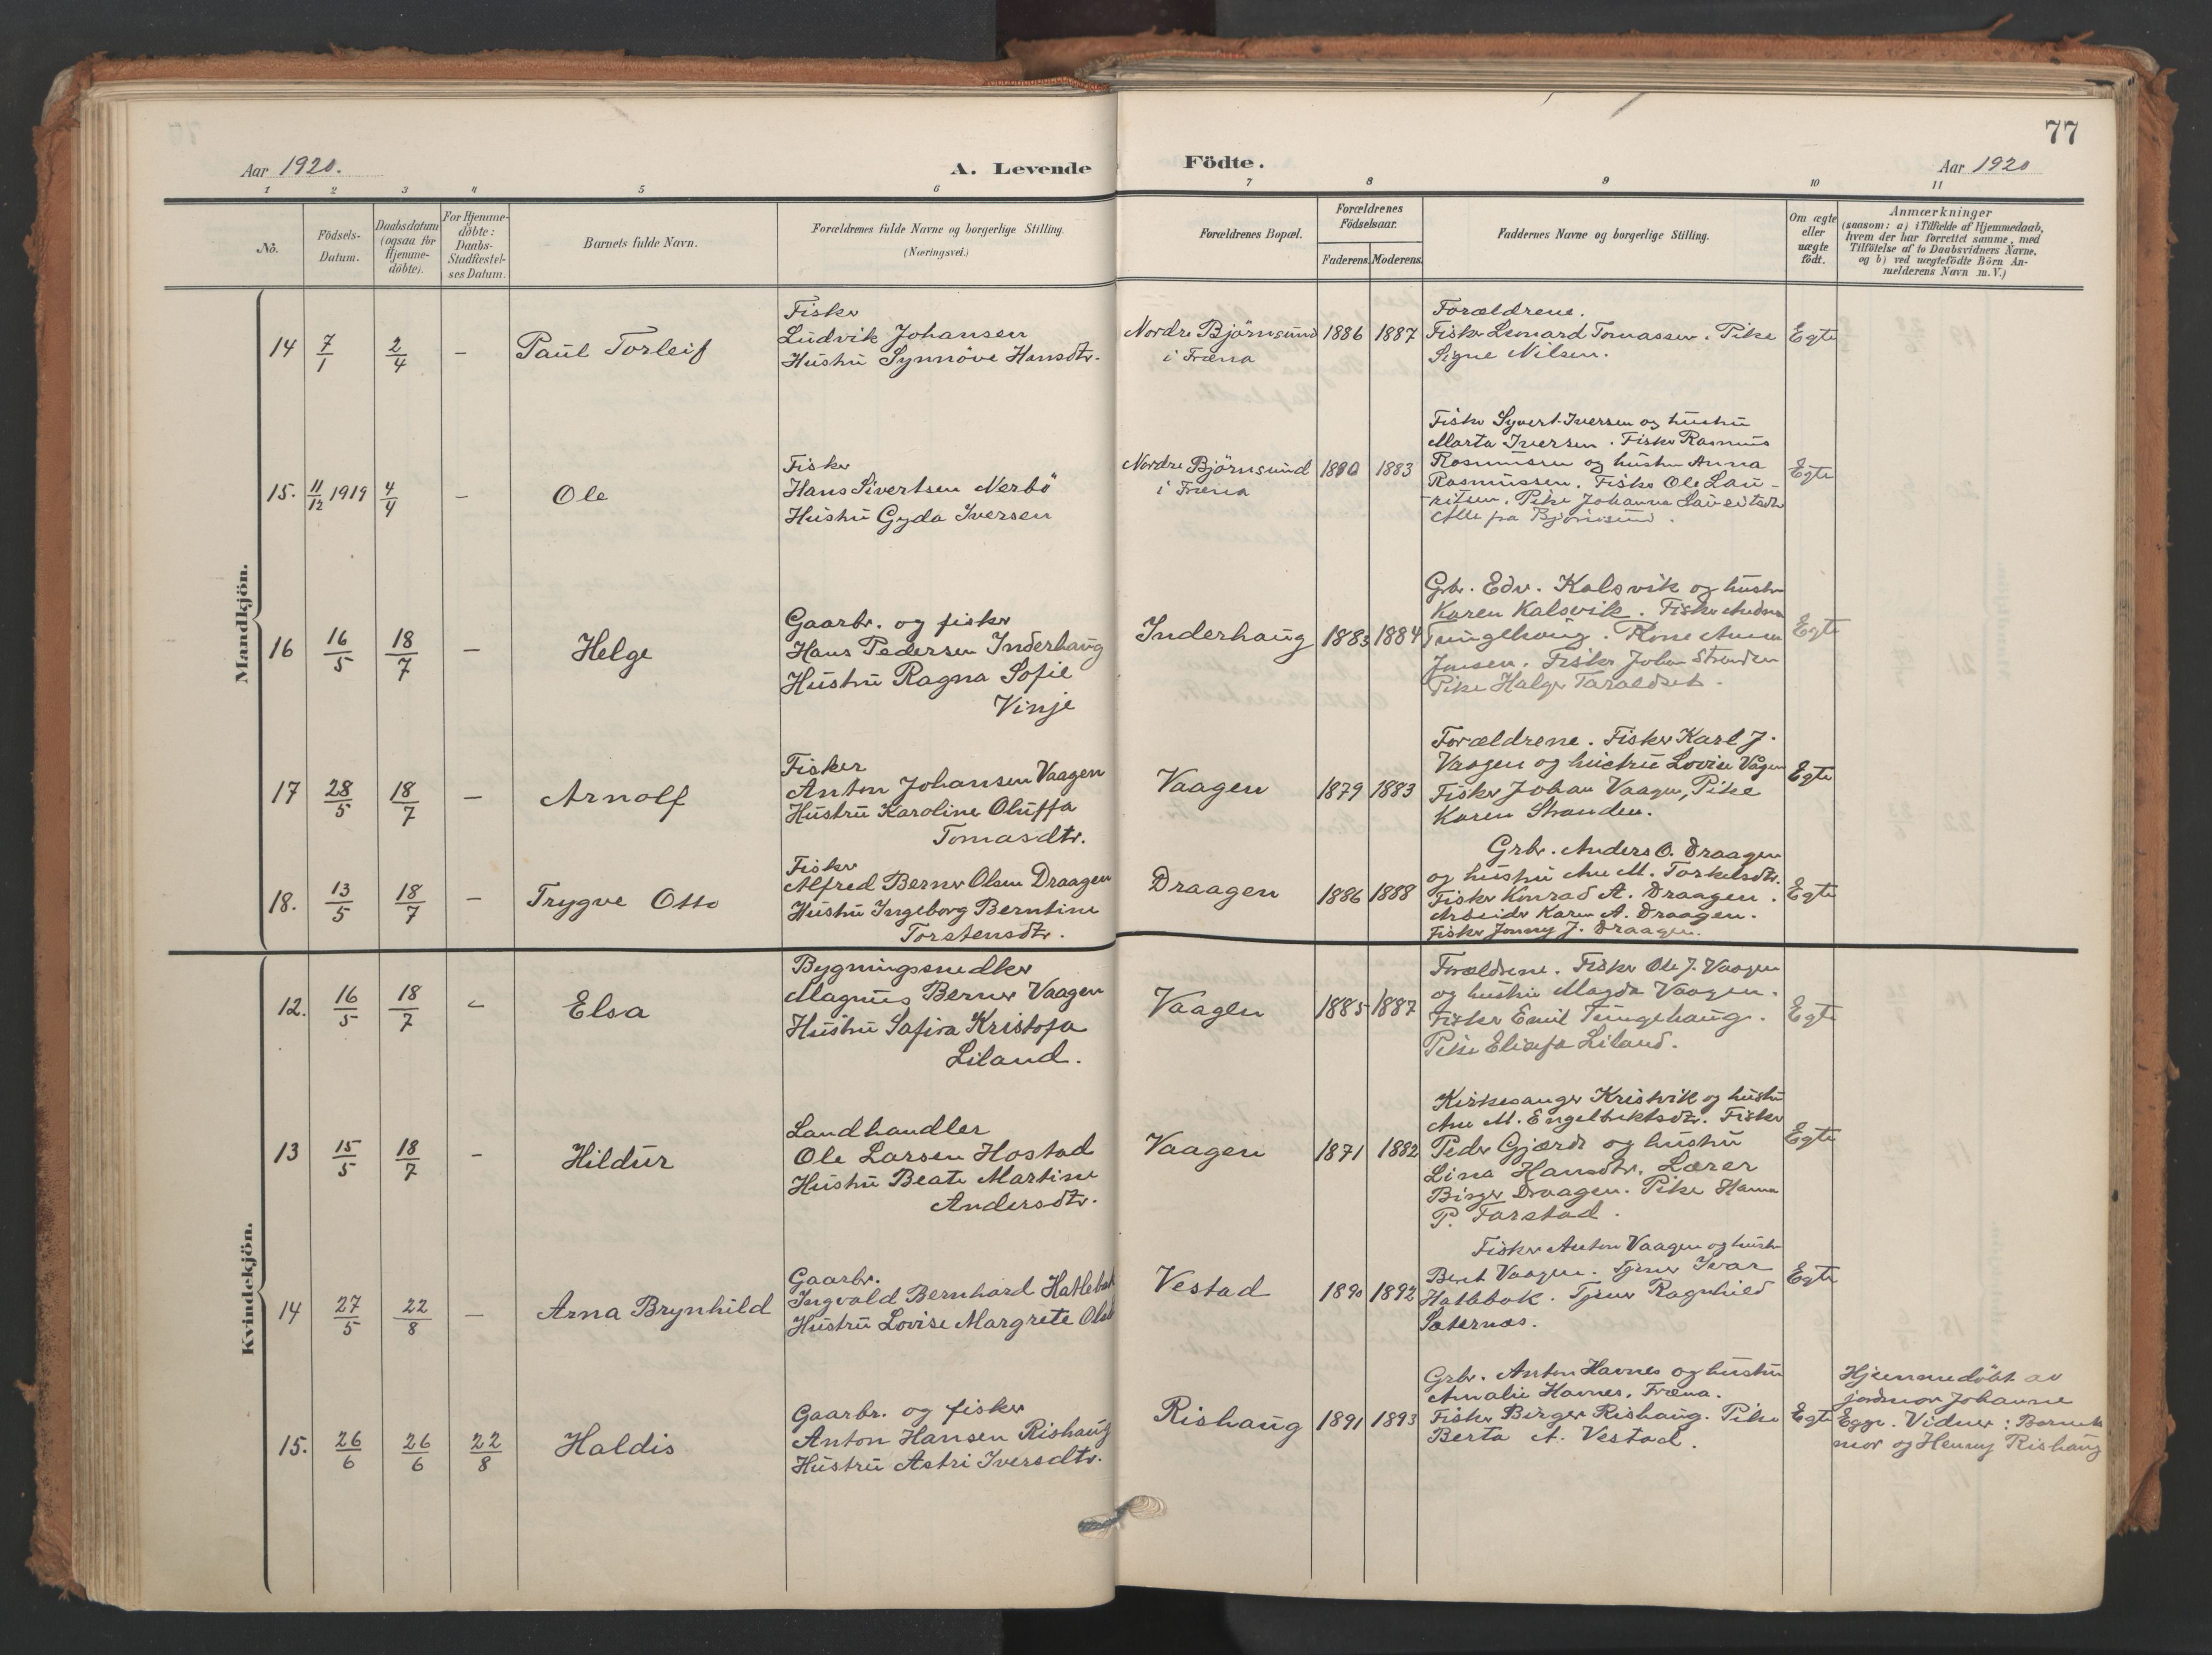 77
Aar 1920.
A. Levende
Födte.
Aar 1920
1 2 3 4 5 6 7 8 9 10 11
No.
Födsels-
Datum.
Daabsdatum
(ogsaa for
Hjemme-
döbte).
For Hjemme-
döbte:
Daabs-
Stadfæstel-
ses Datum.
Barnets fulde Navn.
Forældrenes fulde Navne og borgerlige Stilling.
(Næringsvei.)
Forældrenes Bopæl.
Forældrenes
Födselsaar.
Faderens. Moderens.
Faddernes Navne og borgerlige Stilling.
Om ægte
eller
uægte
födt.
Anmærkninger
(saasom: a) i Tilfælde af Hjemmedaab,
hvem der har forrettet samme, med
Tilföielse af to Daabsvidners Navne,
og b) ved uægtefödte Börn An-
melderens Navn m.V.)
Mandkjön.
14 7/1 2/4 — Paul Torleif
Fisker
Ludvik Johansen
Hustru Synnöve Hansdtr.
Nordre Björnsund
i Fræna
1886 1887
Forældrene.
Fisker Leonard Tomassen. Pike
Signe Nilsen.
Egte
15. 11/12 1919 4/4 — Ole
Fisker
Hans Sivertsen Nerbö
Hustru Gyda Iversen
Nordre Björnsund
i Fræna
1880 1883
Fisker Syvert Iversen og hustru
Marta Iversen. Fisker Rasmus
Rasmussen og hustru Anna
Rasmussen. Fisker Ole Lau-
ritsen. Pike Johanna Lauritsdtr
Alle fra Björnsund.
Egte
16 16/5 18/7 — Helge
Gaarbr. og fisker
Hans Pedersen Inderhaug
Hustru Ragna Sofie
Vinje
Inderhaug
1883 1884
Grbr. Edv. Kalsvik og hustru
Karen Kalsvik. Fisker Andreas
Tungehaug. Kone Anna
Jensen. Fisker Johan Stranden
Pike Halge Taraldset.
Egte
17 28/5 18/7 — Arnolf
Fisker
Anton Johansen Vaagen
Hustru Karoline Oluffa
Tomasdtr.
Vaagen
1879 1883
Forældrene. Fisker Karl J.
Vaagen og hustru Lovise Vågen
Fisker Johan Vaagen, Pike
Karen Stranden.
Egte
18. 13/5 18/7 — Trygve Otto
Fisker
Alfred Berner Olsen Draagen
Hustru Ingeborg Berntine
Torstensdtr.
Draagen
1886 1888
Grbr. Anders O. Draagen
og hustru Ane M. Torkelsdtr.
Fisker Konrad A. Draagen.
Arbeider Karen A. Draagen.
Fisker Jonny J. Draagen.
Egte
Kvindekjön.
12. 16/5 18/7 – Elsa
Bygningssnedker
Magnus Berner Vaagen
Hustru Safira Kristofa
Liland.
Vaagen
1885 1887
Forældrene. Fisker Ole J. Vaagen
og hustru Magda Vaagen.
Fisker Emil Tungehaug.
Pike Elisefa Liland.
Egte
13 15/5 18/7 – Hildur
Landhandler
Ole Larsen Hostad
Hustru Beate Martine
Andersdtr.
Vaagen
1871 1882
Kirkesanger Kristvik og hustru
Ane M. Engelbrektsdtr. Fisker
Peder Gjærde og hustru
Lina Hansdtr. Lærer
Birger Draagen. Pike Hanna
P. Farstad.
Egte
14 27/5 22/8 — Arna Brynhild
Gaarbr.
Ingvald Bernhard Hatlebak
Hustru Lovise Margrete Olsdtr
Vestad
1890 1892
Fisker Anton Vaagen og hustru
Berit Vaagen. Tjener Ivar
Hatlebak. Tjener Ragnhild
Sæternæs.
Egte
15. 26/6 26/6 22/8 Haldis
Gaarbr. og fisker
Anton Hansen Rishaug
Hustru Astri Iversdtr.
Rishaug
1891 1893
Grbr. Anton Havnes og hustru
Amalie Havnes, Fræna.
Fisker Birger Rishaug. Pike
Berta A. Vestad.
Egte
Hjemmedöbt av
jordmor Johanne
Egge. Vidner: Barnets
mor og Henny Rishaug